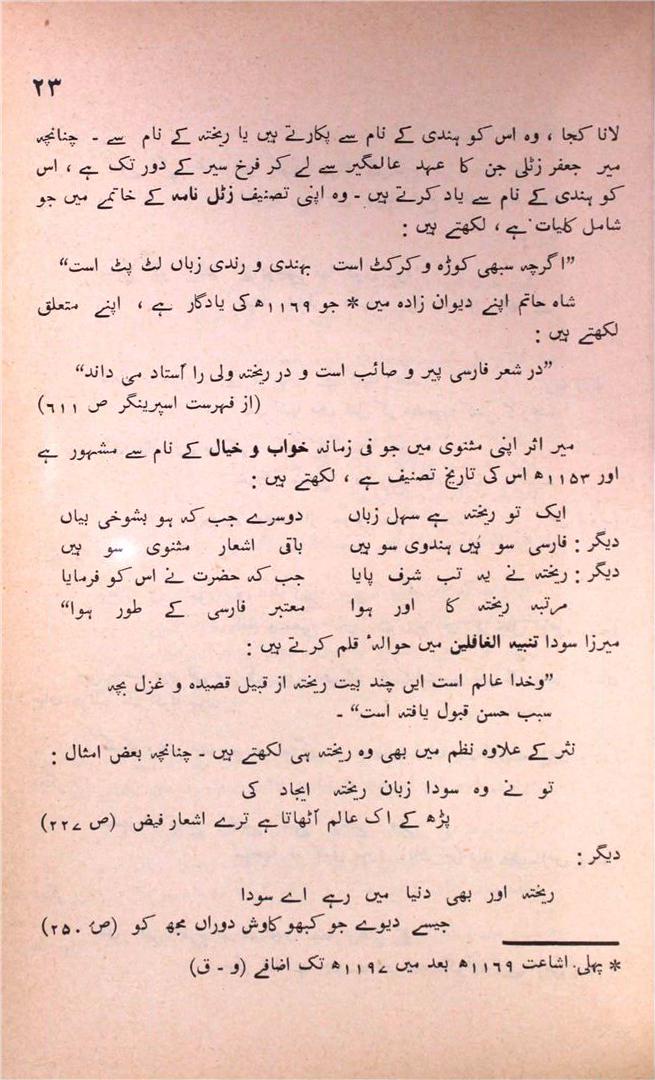 ۲۳
لانا کجا ، وہ اس کو ہندی کے نام سے پکارتے ہیں یا ریختہ کے نام سے ۔ چنانچہ
میر جعفر زٹلی جن کا عہد عالمگیر سے لے کر فرخ سیر کے دور تک ہے ، اس
کو ہندی کے نام سے یاد کرتے ہیں ۔ وہ اپنی تصنیف زٹل نامہ کے خاتمے میں جو
شامل کلیات ہے ، لکھتے ہیں :
”اگرچہ سبھی کوڑہ و کرکٹ است بہندی و رندی زباں لٹ پٹ است“
شاہ حاتم اپنے دیوان زادہ میں * جو ۱۱۶۹ھ کی یادگار ہے ، اپنے متعلق
لکھتے ہیں :
”در شعر فارسی پیر و صائب است و در ریختہ ولی را اُستاد می داند“
(از فہرست اسپرینگر ص ۶۱۱)
میر اثر اپنی مثنوی میں جو فی زمانہ خواب و خیال کے نام سے مشہور ہے
اور ۱۱۵۳ھ اس کی تاریخ تصنیف ہے ، لکھتے ہیں :
ایک تو ریختہ ہے سہل زباں دوسرے جب کہ ہو بشوخی بیاں
دیگر : فارسی سو ہیں ہندوی سو ہیں باقی اشعار مثنوی سو ہیں
دیگر : ریختہ نے یہ تب شرف پایا جب کہ حضرت نے اس کو فرمایا
مرتبہ ریختہ کا اور ہوا معتبر فارسی کے طور ہوا“
میرزا سودا تنبیہ الغافلین میں حوالۂ قلم کرتے ہیں :
”وخدا عالم است ایں چند بیت ریختہ از قبیل قصیدہ و غزل بچہ
سبب حسن قبول یافتہ است“ ۔
نثر کے علاوہ نظم میں بھی وہ ریختہ ہی لکھتے ہیں ۔ چنانچہ بعض امثال :
تو نے وہ سودا زبان ریختہ ایجاد کی
پڑھ کے اک عالم اُٹھاتا ہے ترے اشعار فیض (ص ۲۲۷)
دیگر :
ریختہ اور بھی دنیا میں رہے اے سودا
جیسے دیوے جو کبھو کاوش دوراں مجھ کو (ص ۲۵۰)
* پہلی اشاعت ۱۱۶۹ھ بعد میں ۱۱۹۷ھ تک اضافے (و ۔ ق)